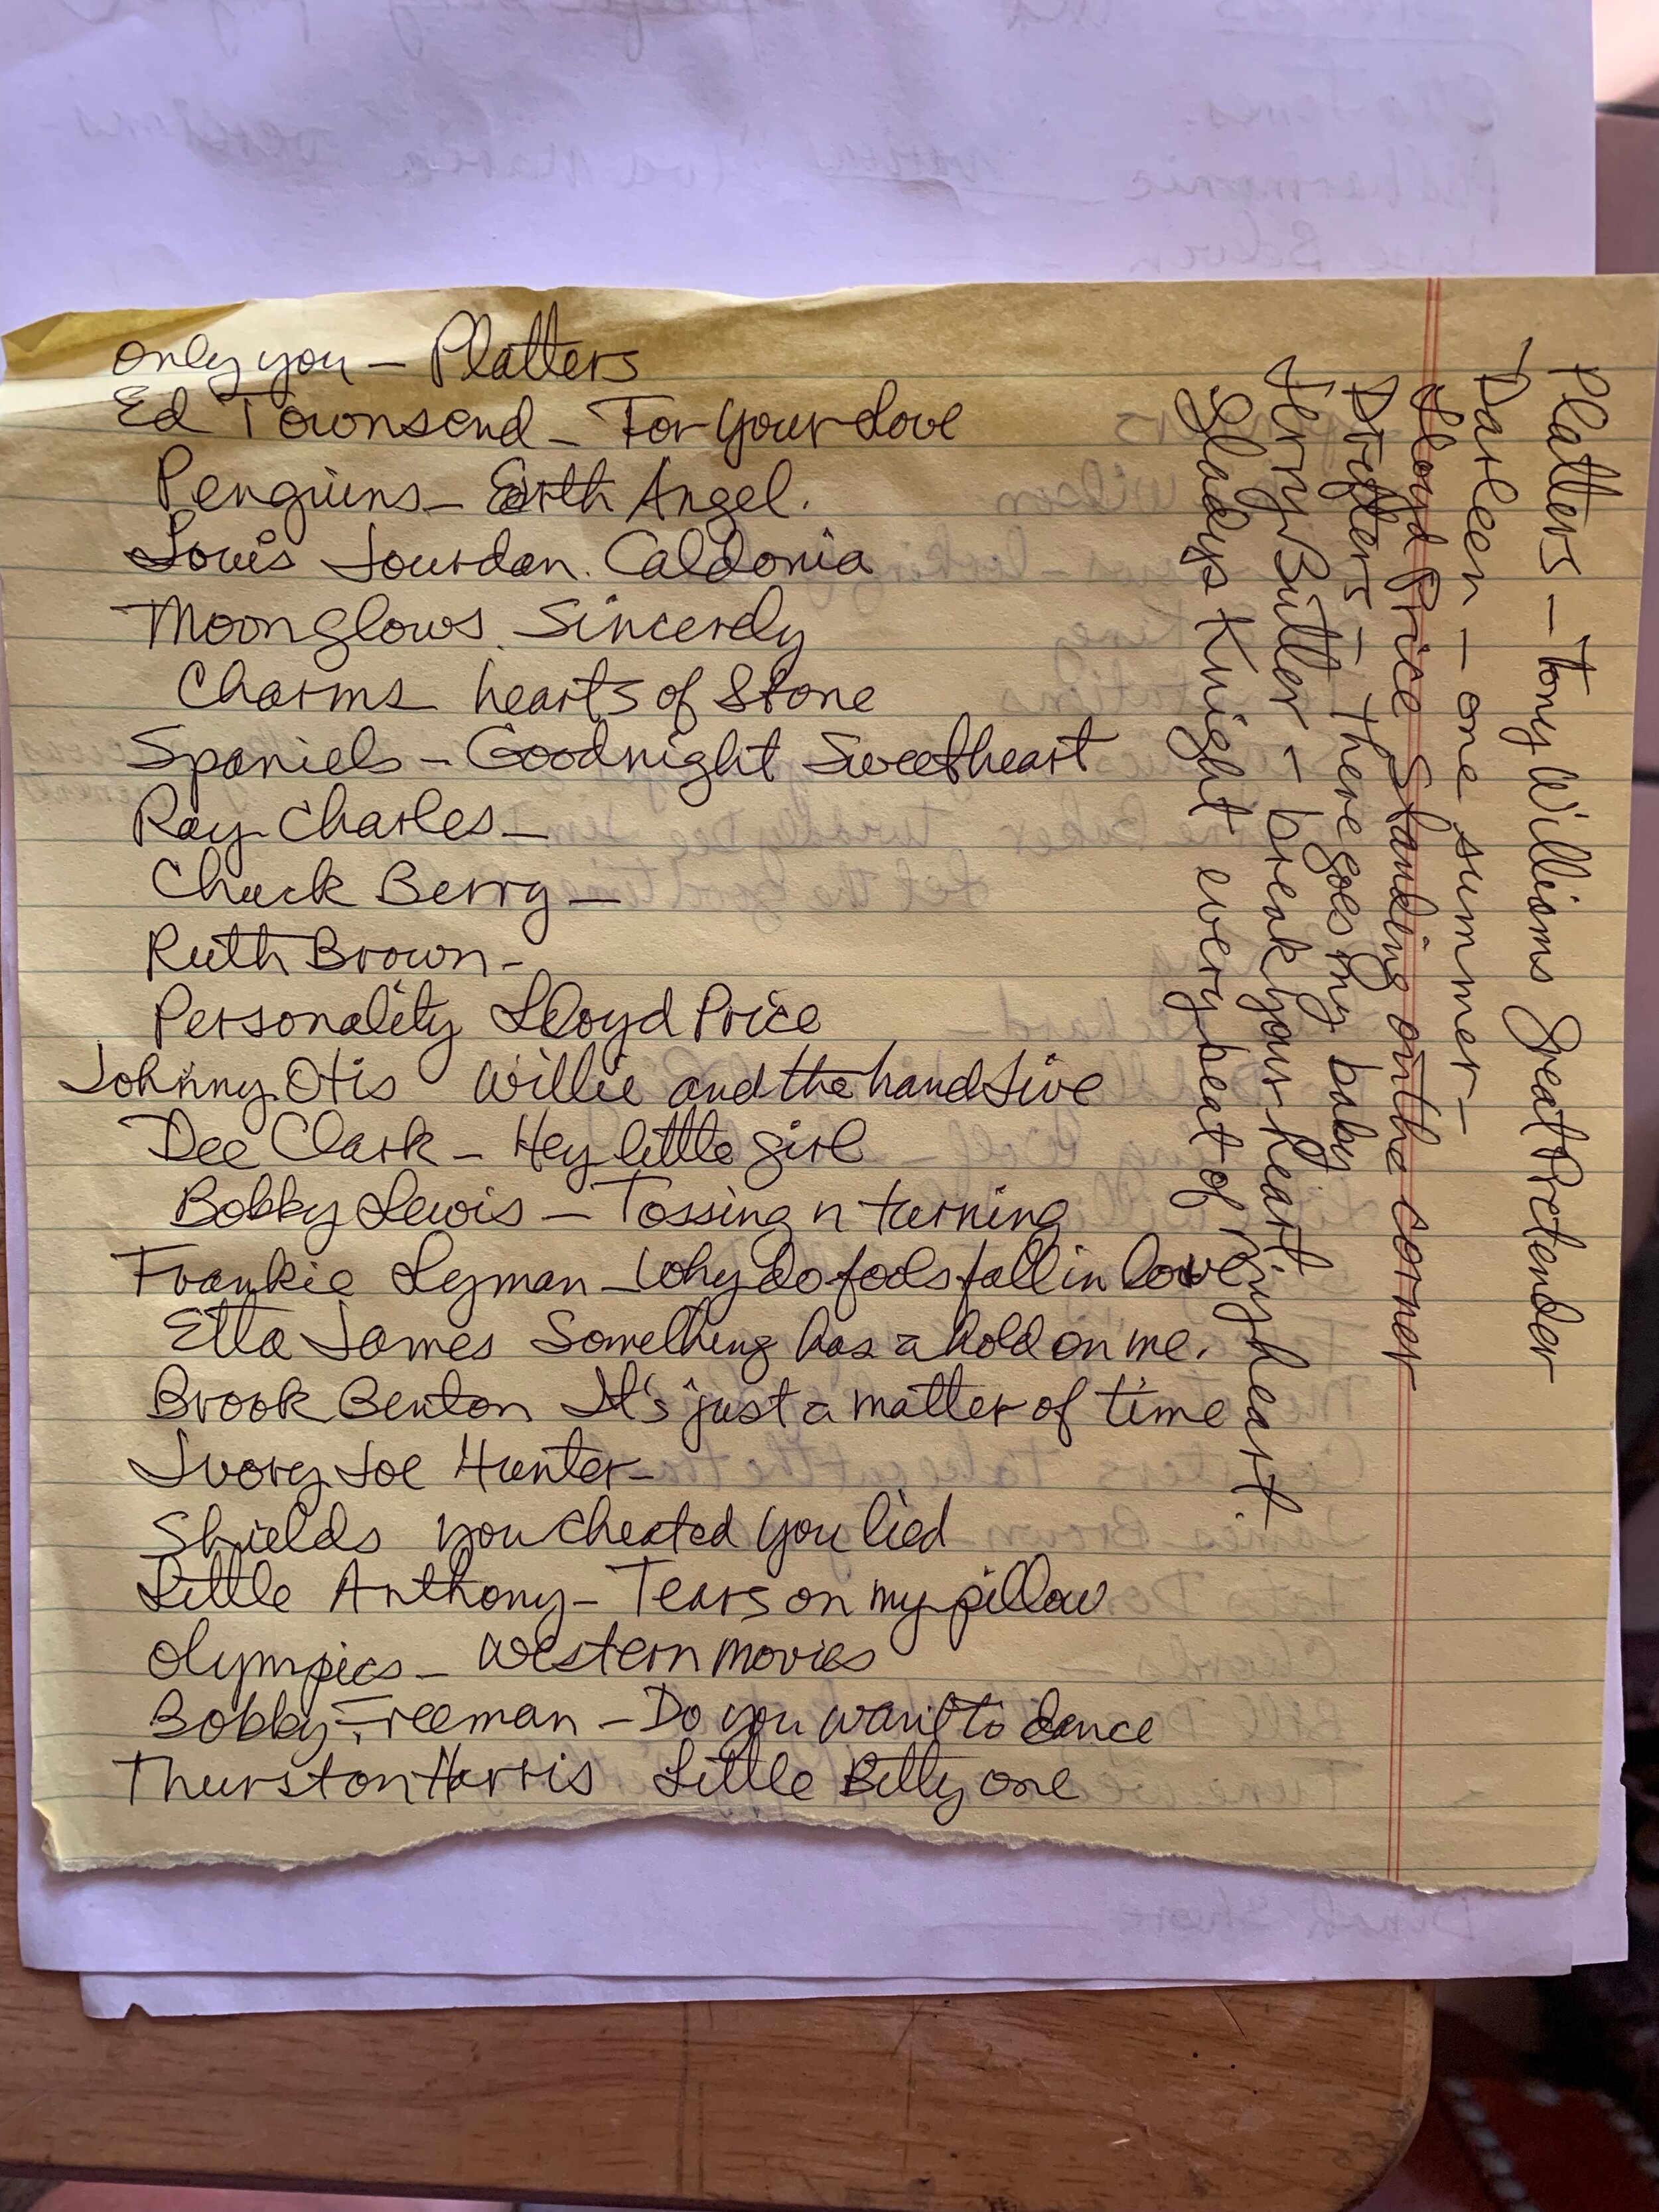 only you – Platters
Ed Townsend – For Your Love
Penguins – Earth Angel.
Louis Jourdan. Caldonia
Moonglows. Sincerely
Charms hearts of Stone
Spaniels – Goodnight Sweetheart
Ray Charles –
Chuck Berry –
Ruth Brown –
Personality Lloyd Price
Johnny Otis Willie and the hand Jive
Dee Clark – Hey little girl
Bobby Lewis – Tossing n turning
Frankie Lyman – Why do fools fall in love
Etta James Something has a hold on me.
Brook Benton It's just a matter of time
Ivory Joe Hunter –
Shields you cheated you lied
Little Anthony – Tears on my pillow
Olympics – Western movies
Bobby Freeman – Do you want to dance
Thurston Harris Little Bitty one
Platters – Tony Williams Great Pretender
Darleen – one summer –
Lloyd Price Standing on the corner
Drifters – There goes my baby
Jerry Butler – break your heart
Gladys Knight every beat of my heart